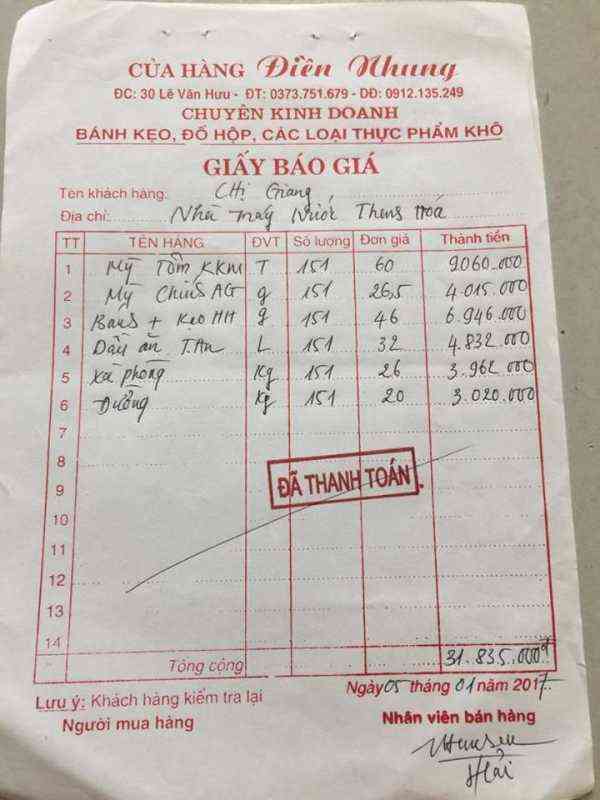 CỬA HÀNG Điền Nhung
ĐC: 30 Lê Văn Hưu - ĐT: 0373.751.679 - DĐ: 0912.135.249
CHUYÊN KINH DOANH
BÁNH KẸO, ĐỒ HỘP, CÁC LOẠI THỰC PHẨM KHÔ
GIẤY BÁO GIÁ
Tên khách hàng: Chị Giang
Địa chỉ: Nhà máy Thanh Hoá
TT TÊN HÀNG ĐVT Số lượng Đơn giá Thành tiền
1 Mỳ Tôm KKM T 151 60 9.060.000
2 Mỳ Chính AG g 151 26,5 4.015.000
3 Bánh + Kẹo HH g 151 46 6.946.000
4 Dầu ăn T.An L 151 32 4.832.000
5 Xà phòng Kg 151 26 3.962.000
6 Đường Kg 151 20 3.020.000
7
8
ĐÃ THANH TOÁN
9
10
11
12
13
14
Tổng cộng 31.835.000đ
Ngày 05 tháng 01 năm 2017
Lưu ý: Khách hàng kiểm tra lại
Người mua hàng Nhân viên bán hàng
Hải